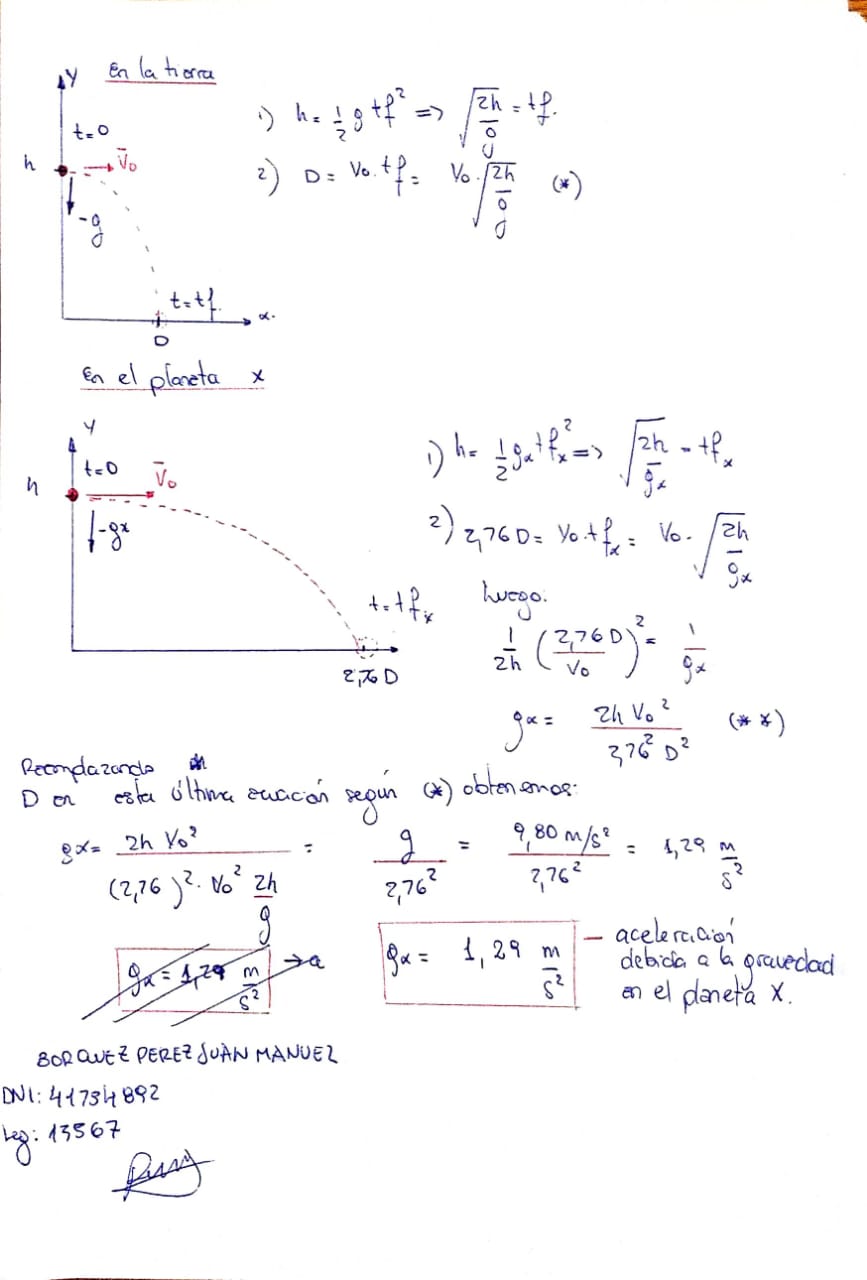 En la tierra
y
t=0
h
V̄o
-g
t=tf.
D
x.
1) h = 1/2 g tf² => √(2h/g) = tf.
2) D = Vo.tf = Vo.√(2h/g) (*)
En el planeta x
y
t=0
V̄o
h
-gx
t=tfx
2,76 D
1) h = 1/2 gx tfx² => √(2h/gx) = tfx
2) 2,76 D = Vo.tfx = Vo.√(2h/gx)
Luego:
1/2h (2,76 D/Vo)² = 1/gx
gx = 2h Vo²/2,76² D² (**)
Reemplazando
D en esta última ecuación según (*) obtenemos:
gx = 2h Vo²/(2,76)².Vo² 2h/g = g/2,76² = 9,80 m/s²/2,76² = 1,29 m/s²
gx = 1,29 m/s² →a
gx = 1,29 m/s² — aceleración
debida a la gravedad
en el planeta X.
BORQUEZ PEREZ JUAN MANUEL
DNI: 41734892
Leg: 13567